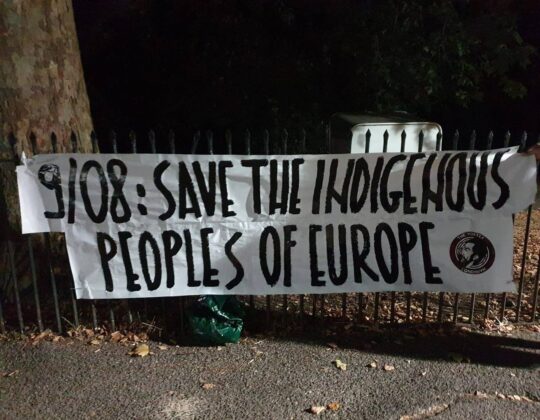 9/08: SAVE THE INDIGENOUS
PEOPLES OF EUROPE